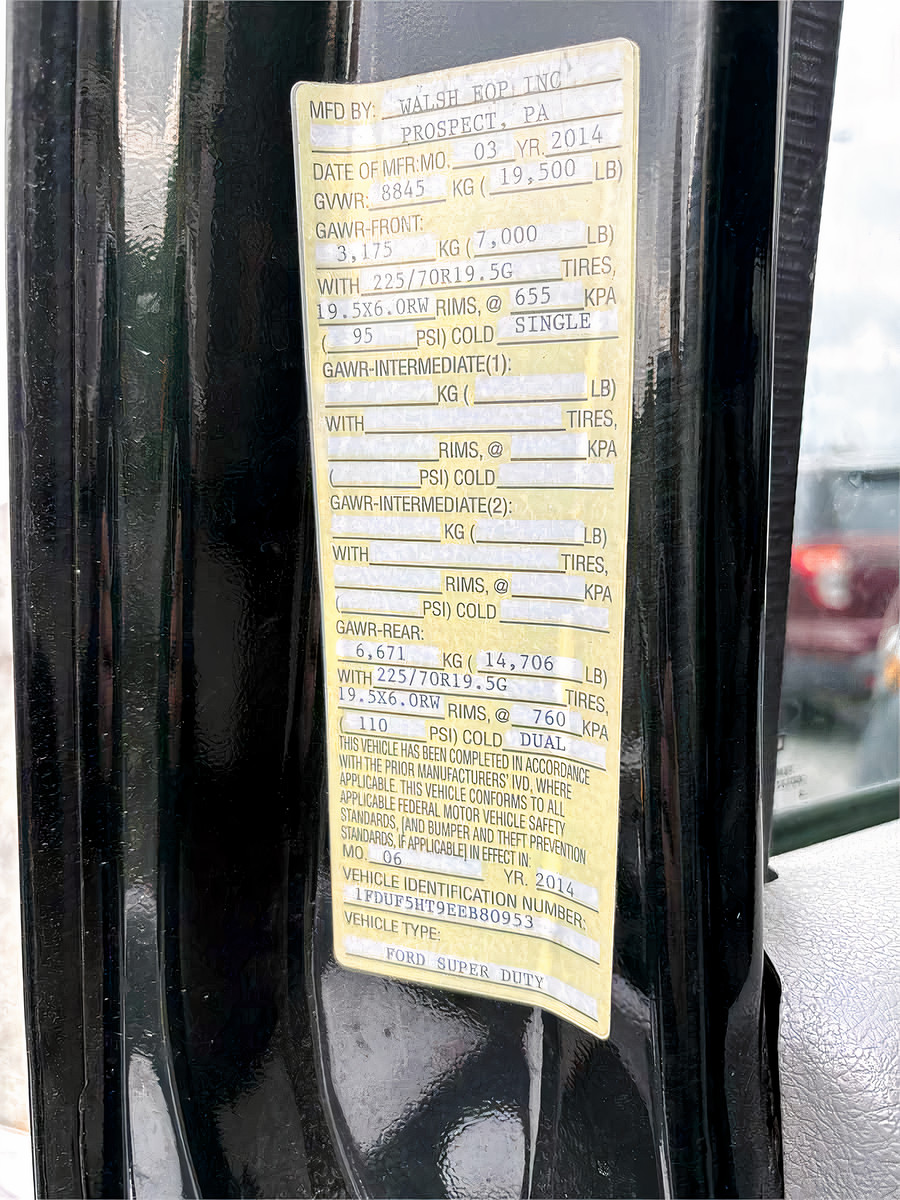 MFD BY: WALSH EQP INC
PROSPECT, PA
DATE OF MFR:MO. 03 YR. 2014
GVWR: 8845 KG ( 19,500 LB)
GAWR-FRONT:
3,175 KG ( 7,000 LB)
WITH 225/70R19.5G TIRES,
19.5X6.0RW RIMS, @ 655 KPA
( 95 PSI) COLD SINGLE
GAWR-INTERMEDIATE(1):
KG ( LB)
WITH TIRES,
RIMS, @ KPA
( PSI) COLD
GAWR-INTERMEDIATE(2):
KG ( LB)
WITH TIRES,
RIMS, @ KPA
( PSI) COLD
GAWR-REAR:
6,671 KG ( 14,706 LB)
WITH 225/70R19.5G TIRES,
19.5X6.0RW RIMS, @ 760 KPA
( 110 PSI) COLD DUAL
THIS VEHICLE HAS BEEN COMPLETED IN ACCORDANCE
WITH THE PRIOR MANUFACTURERS' IVD, WHERE
APPLICABLE. THIS VEHICLE CONFORMS TO ALL
APPLICABLE FEDERAL MOTOR VEHICLE SAFETY
STANDARDS, [AND BUMPER AND THEFT PREVENTION
STANDARDS, IF APPLICABLE] IN EFFECT IN:
MO. 06 YR. 2014
VEHICLE IDENTIFICATION NUMBER:
1FDUF5HT9EEB80953
VEHICLE TYPE:
FORD SUPER DUTY